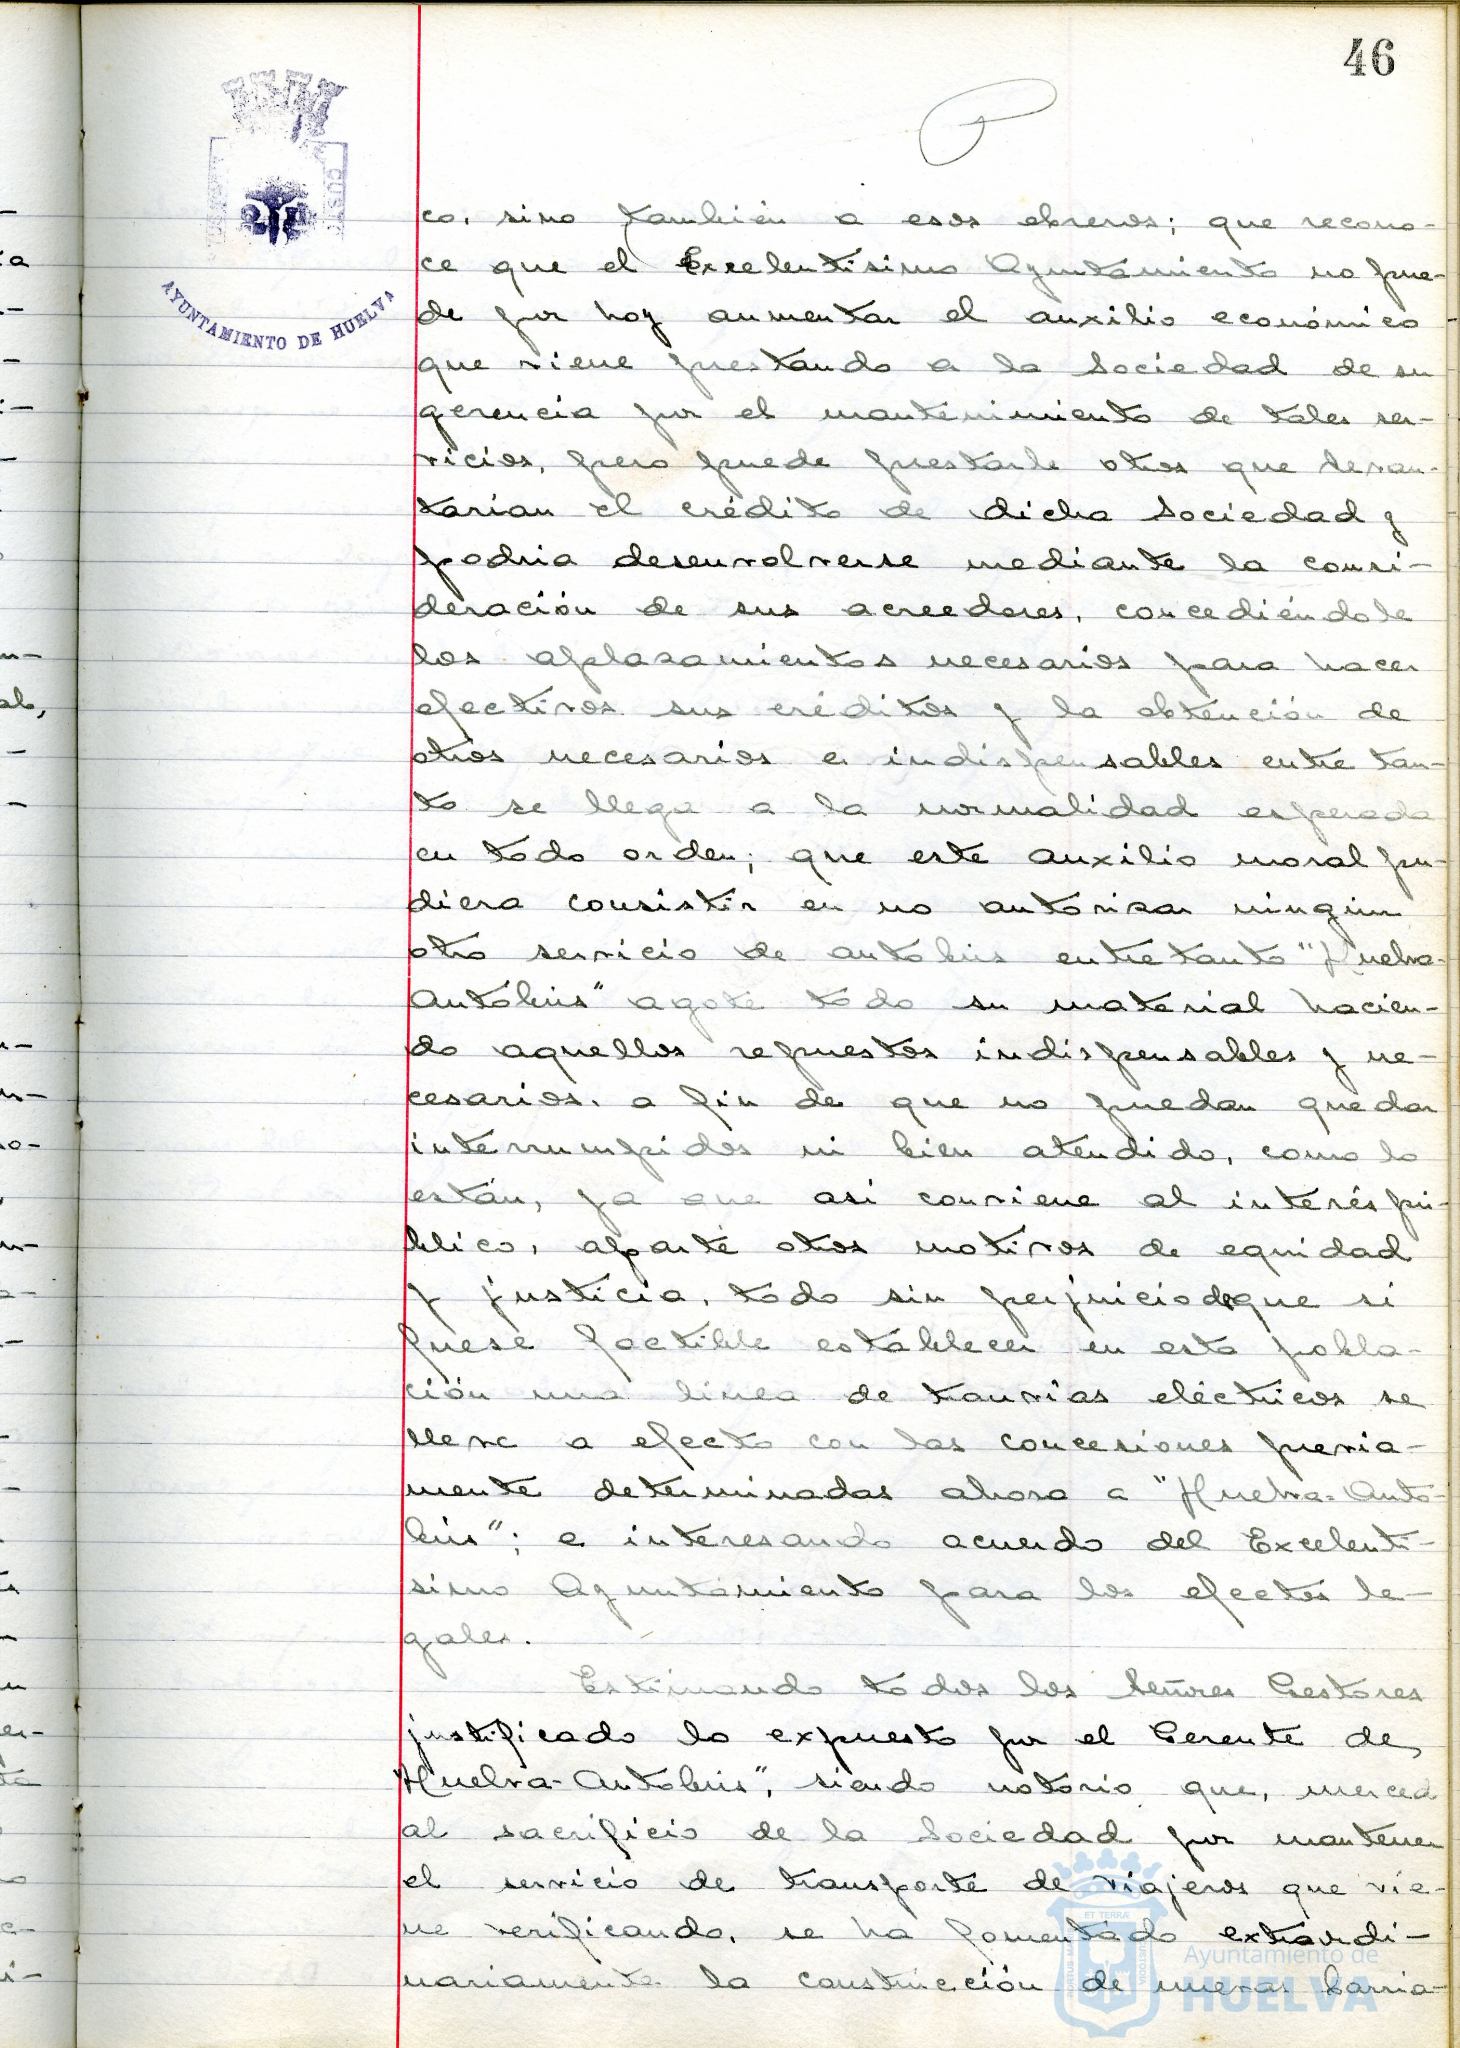 46
AYUNTAMIENTO DE HUELVA
co, sino también a esos obreros; que recono-
ce que el Excelentísimo Ayuntamiento no pue-
de por hoy aumentar el auxilio económico
que viene prestando a la Sociedad de su
gerencia por el mantenimiento de tales ser-
vicios, pero puede prestarle otros que levan-
tarian el crédito de dicha Sociedad y
podria desenvolverse mediante la consi-
deración de sus acreedores, concediéndole
los aplazamientos necesarios para hacer
efectivos sus créditos y la obtención de
otros necesarios e indispensables entre tan-
to se llega a la normalidad esperada
en todo orden; que este auxilio moral pu-
diera consistir en no autorizar ningún
otro servicio de autobus entretanto "Huelva-
Autóbus" agote todo su material hacien-
do aquellos repuestos indispensables y ne-
cesarios, a fin de que no puedan quedar
interrumpidos ni bien atendido, como lo
están, ya que asi conviene al interés pú-
blico, aparte otros motivos de equidad
y justicia, todo sin perjuicio de que si
fuese factible establecer en esta pobla-
ción una linea de tranvias eléctricos se
lleve a efecto con las concesiones previa-
mente determinadas ahora a "Huelva-Auto-
bús"; e interesando acuerdo del Excelenti-
simo Ayuntamiento para los efectos le-
gales.
Estimando todos los Señores Gestores
justificado lo expuesto por el Gerente de
"Huelva-Autobus", siendo notorio que, merced
al sacrificio de la Sociedad por mantener
el servicio de transporte de viajeros que vie-
ne verificando, se ha fomentado extraordi-
nariamente la construcción de nuevas barria-
Ayuntamiento de
HUELVA